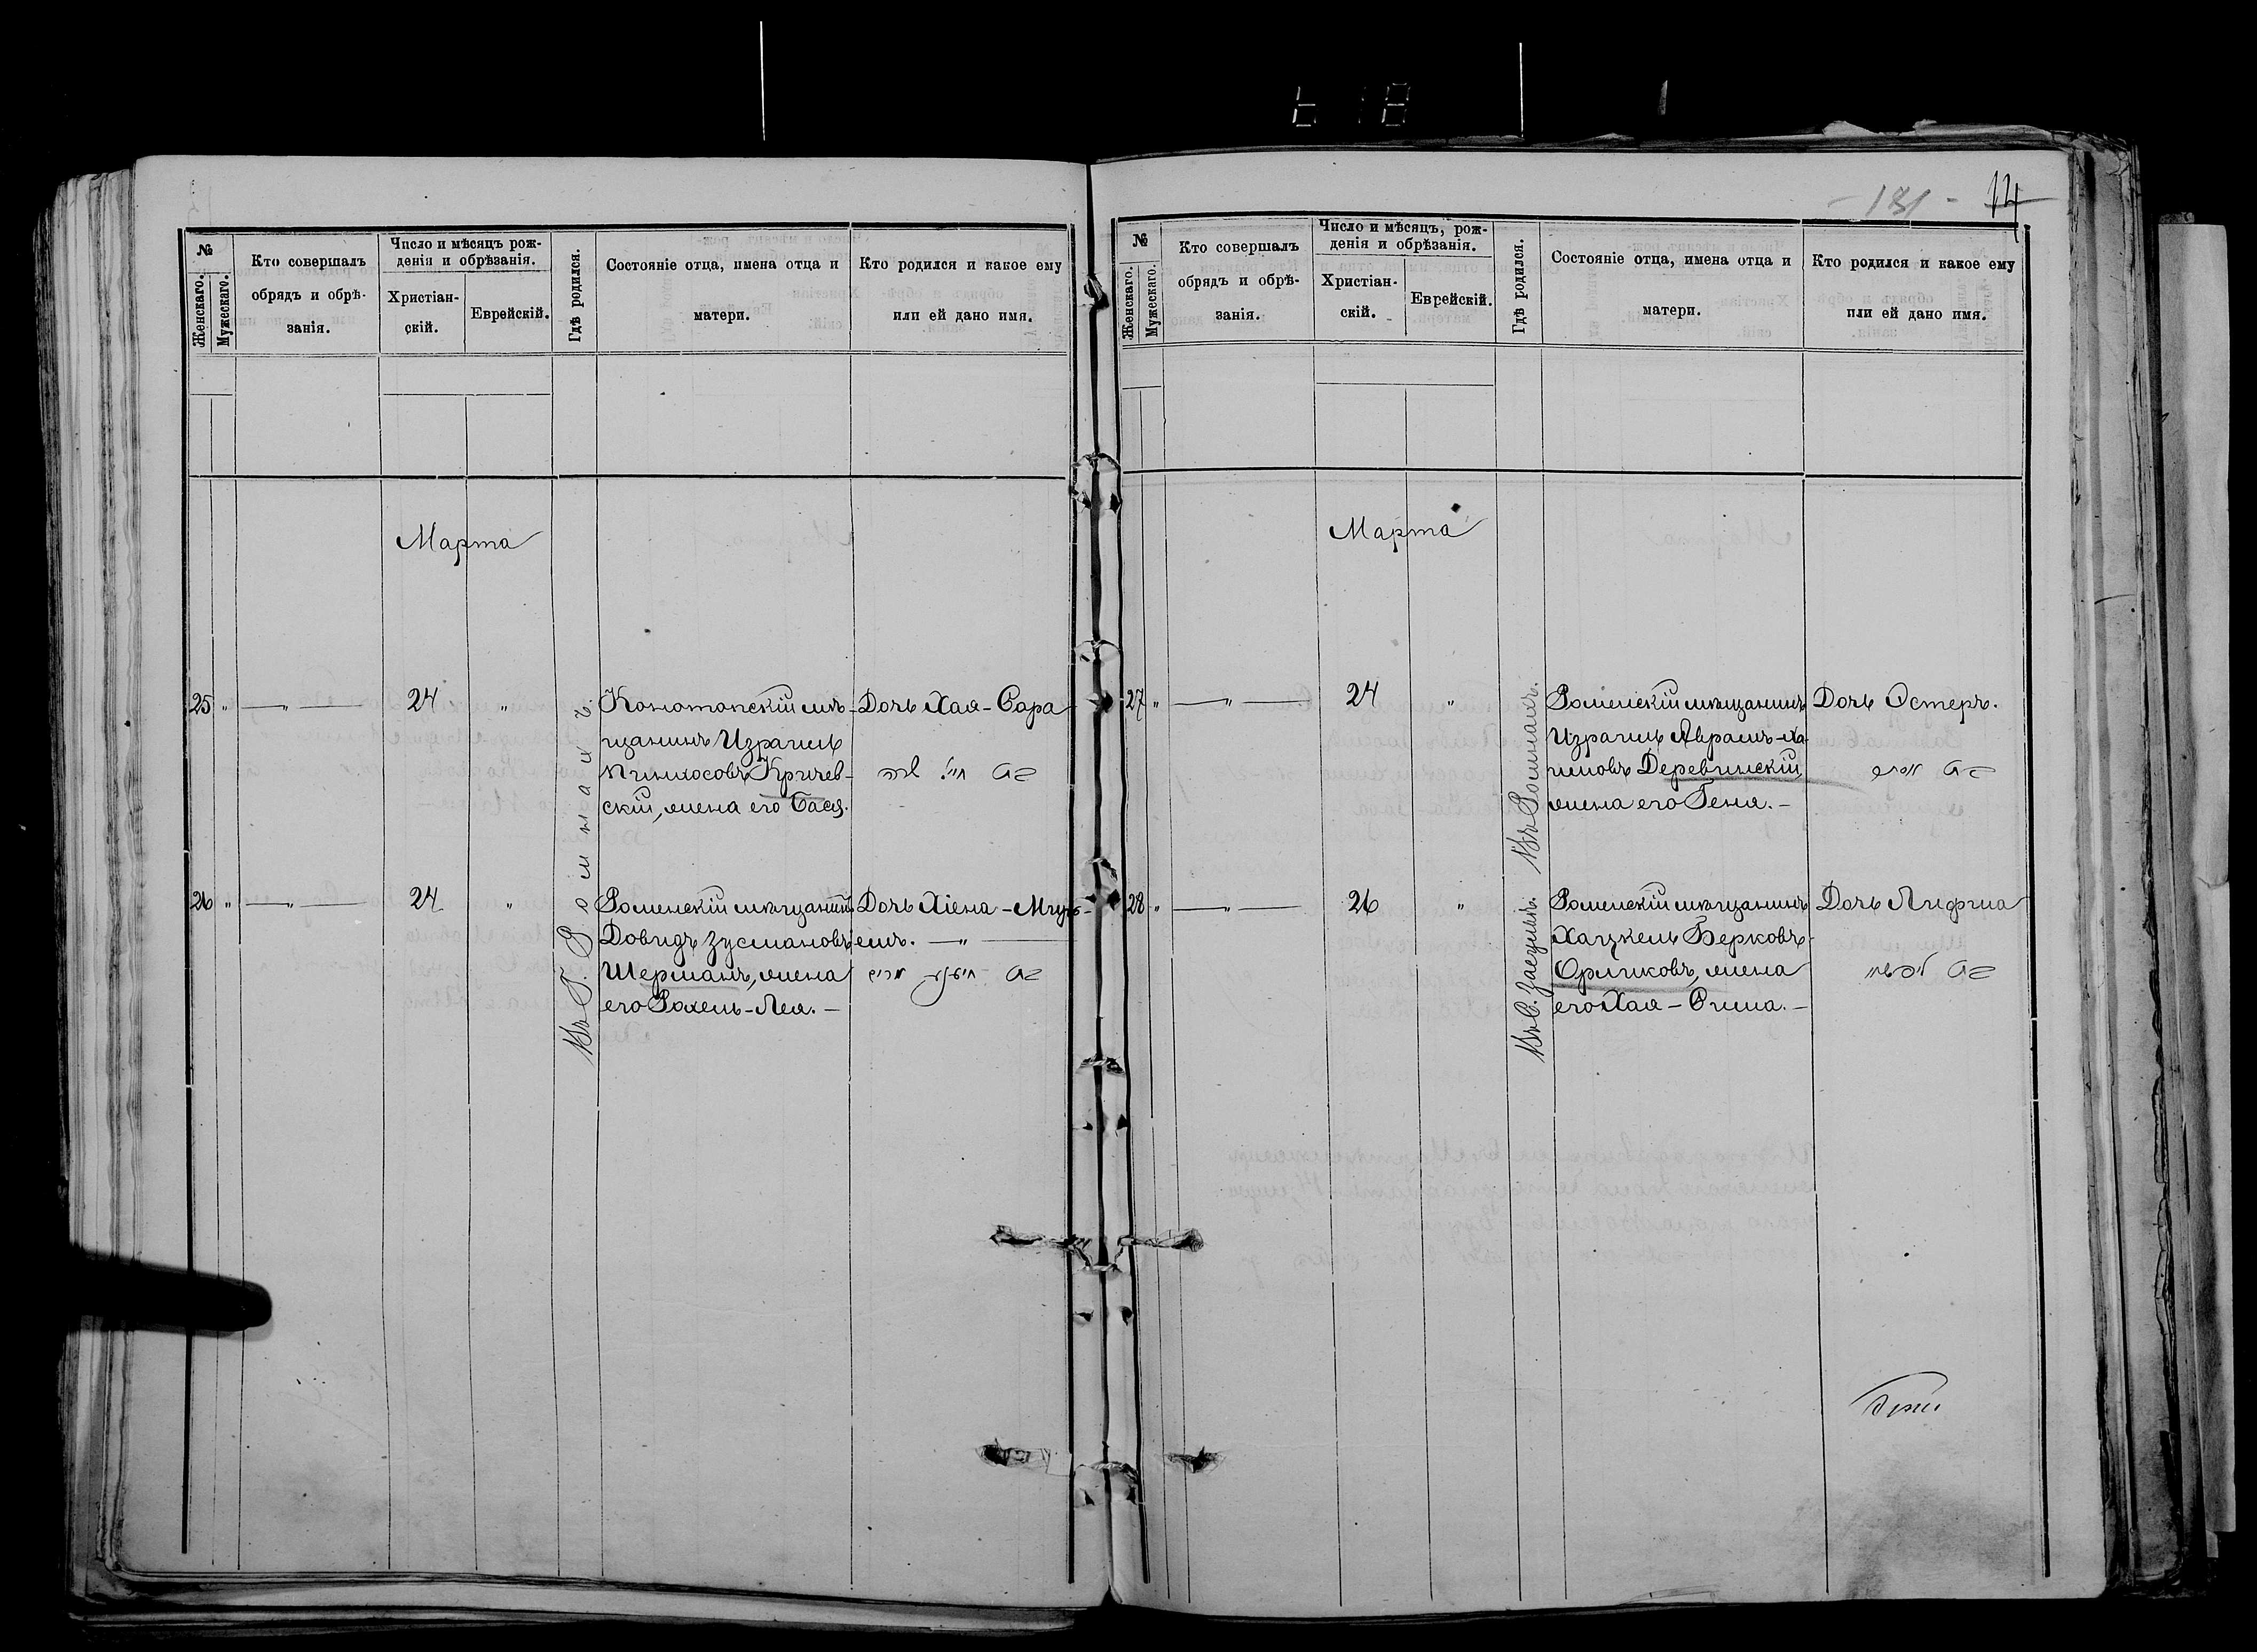 618
1
- 181 -
14
№
Женскаго.
Мужескаго.
Кто совершалъ
обрядъ и обрѣ-
занія.
Число и мѣсяцъ рож-
денія и обрѣзанія.
Христіан-
скій.
Еврейскій.
Гдѣ родился.
Состояніе отца, имена отца и
матери.
Кто родился и какое ему
или ей дано имя.
Марта
25 " — " — 24 "
Въ Г. Ромнахъ.
Конотопскій мѣ-
щанинъ Израиль
Пинхосовъ Кричев-
скій, жена его Бася.
Дочь Хая-Сара
בת חי' שרה
26 " — " — 24 "
Роменскій мѣщанинъ
Довидъ Зусмановъ
Шерманъ, жена
его Рохель-Лея. —
Дочь Хіена-Мирь-
емъ. — " —
בת חיענע מרים
№
Женскаго.
Мужескаго.
Кто совершалъ
обрядъ и обрѣ-
занія.
Число и мѣсяцъ, рож-
денія и обрѣзанія.
Христіан-
скій.
Еврейскій.
Гдѣ родился.
Состояніе отца, имена отца и
матери.
Кто родился и какое ему
или ей дано имя.
Марта
27 " — " — 24 "
Въ Ромнахъ.
Роменскій мѣщанинъ
Израиль Авраамъ-Ха-
имовъ Деревинскій,
жена его Геня. —
Дочь Эстеръ.
בת אסתר
28 " — " — 26 "
Въ С.
Роменскій мѣщанинъ
Хацкель Берковъ
Орликовъ, жена
его Хая-Сима. —
Дочь
בת